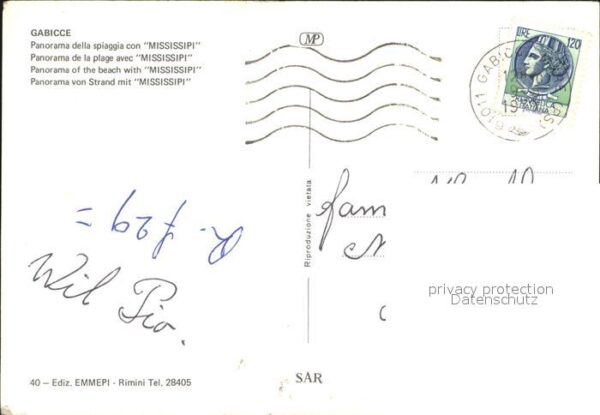 GABICCE
Panorama della spiaggia con "MISSISSIPI"
Panorama de la plage avec "MISSISSIPI"
Panorama of the beach with "MISSISSIPI"
Panorama von Strand mit "MISSISSIPI"
MP
LIRE 120
61011 GABICCE
19
Riproduzione vietata
fam
R. f29 =
Wil Pio.
privacy protection
Datenschutz
40 — Ediz. EMMEPI - Rimini Tel. 28405
SAR